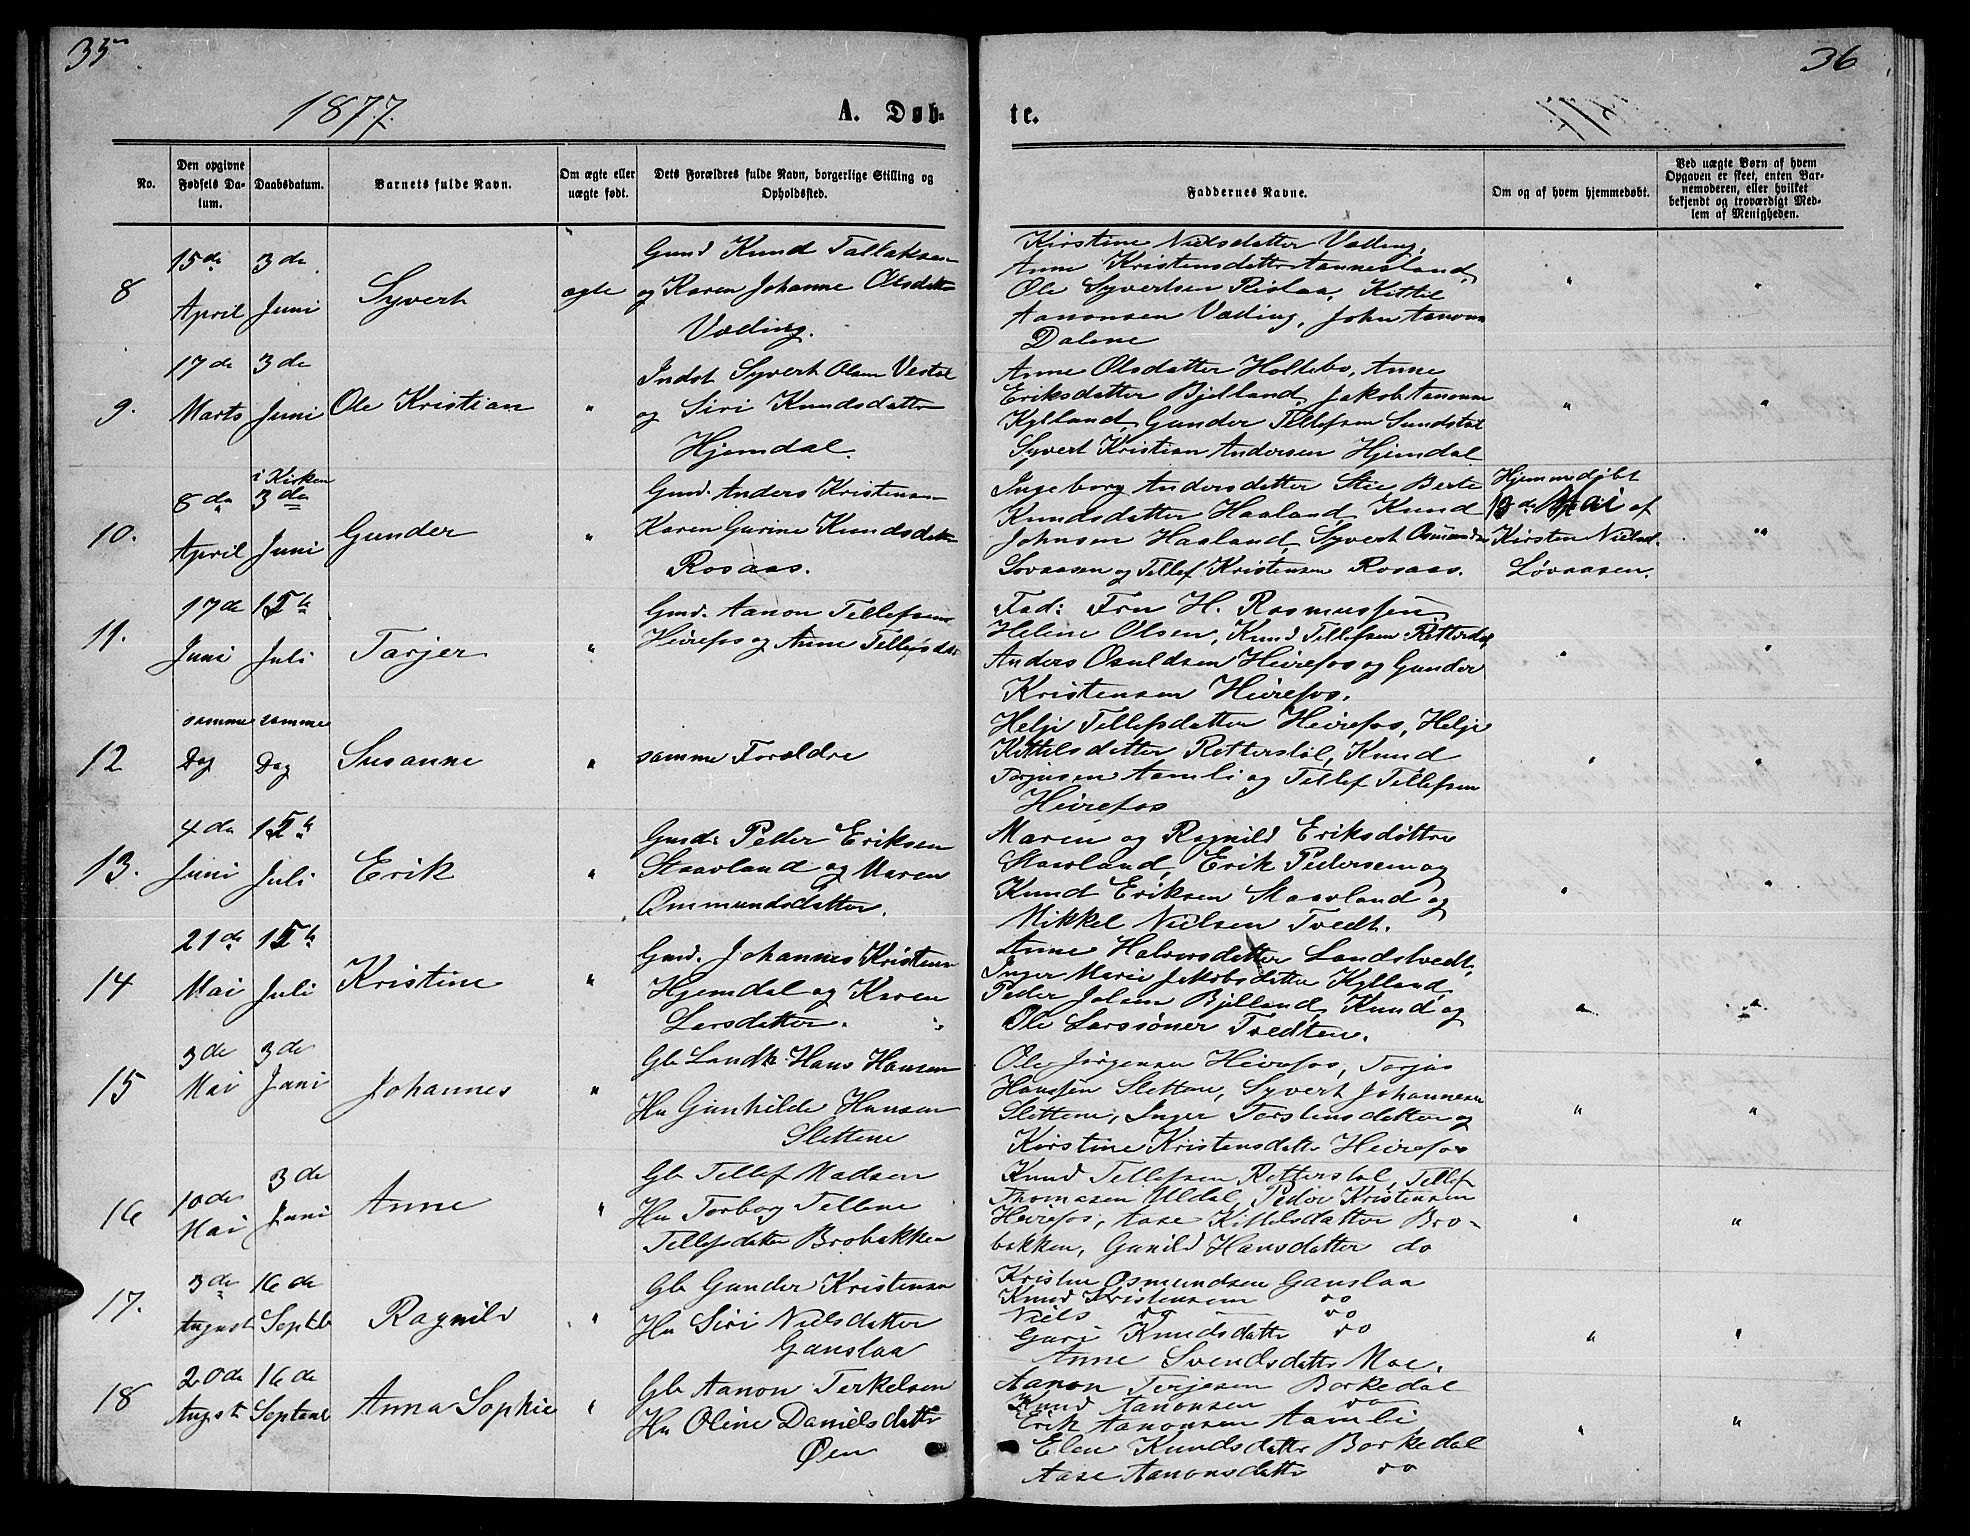 35
36
1877.
A. Døb-
te.
No.
Den opgivne
Fødsels Da-
tum.
Daabsdatum.
Barnets fulde Navn.
Om ægte eller
uægte født.
Dets Forældres fulde Navn, borgerlige Stilling og
Opholdssted.
Faddernes Navne.
Om og af hvem hjemmedøbt.
Ved uægte Børn af hvem
Opgaven er skeet, enten Bar-
nemoderen, eller hvilket
bekjendt og troværdigt Med-
lem af Menigheden.
8
15de
April
3de
Juni
Syvert
ægte
Gmd Knud Tallaksen
og Karen Johanne Olsdatter
Væding.
Kirstine Nielsdatter Væding,
Anne Kristensdatter Aannesland,
Ole Syvertsen Rislaa, Kittil
Aanonsen Væding, John Aanonsen
Dalene
"
"
9.
17de
Marts
3de
Juni
Ole Kristian
"
Indst Syvert Olsen Vestøl
og Siri Knudsdatter
Hjemdal.
Anne Olsdatter Holtebo, Anne
Eriksdatter Bjelland, Jakob Aanonsen
Kylland, Gunder Tellefsen Sundstøl
Syvert Kristian Andersen Hjemdal
"
"
10.
8de
April
i Kirken
3de
Juni
Gunder
"
Gmd. Anders Kristensen
Karen Gurine Knudsdatter
Rosaas.
Ingeborg Andersdatter Stie Berte
Knudsdatter Haaland, Knud
Johnsen Haaland, Syvert Osmundsen
Lovaasen og Tellef Kristensen Rosaas.
Hjemmedøbt
Mai af
Kirsten Nielsd.
Løvaasen.
"
11.
17de
Juni
15de
Juli
Tarjer
"
Gmd. Aanon Tellefsen
Heirefos og Anne Tellefsdatter
Fad: Fru H. Rasmussen
Helene Olsen, Knud Tellefsen Retterstøl,
Anders Osuldsen Heirefos og Gunder
Kristensen Heirefos.
"
"
12
samme
Dag
samme
Dag
Susanne
"
samme Forældre
Helje Tellefsdatter Heirefos, Helje
Kittelsdatter Retterstøl, Knud
Torjusen Aamli og Tellef Tellefsen
Heirefos
"
"
13.
4de
Juni
15de
Juli
Erik
"
Gmd. Peder Eriksen
Staavland og Maren
Ommundsdatter.
Maren og Ragnild Eriksdøttre
Staavland, Erik Pedersen og
Knud Eriksen Staavland og
Mikkel Nielsen Tvedt.
"
"
14
21de
Mai
15de
Juli
Kristine
"
Gmd. Johannes Kristensen
Hjemdal og Karen
Larsdatter.
Anne Halvorsdatter Landstvedt,
Inger Marie Jakobsdatter Kylland,
Peder Jolsen Bjelland, Knud og
Ole Larssønner Tvedten.
"
"
15
3de
Mai
3de
Juni
Johannes
"
Gb Landh. Hans Hansen
Hu Gunhilde Hansen
Slettene
Ole Jørgensen Heirefos, Torjus
Hanssen Slettene, Syvert Johannesen
Slettene, Inger Torstensdatter og
Kirstine Kristensdatter Heirefos
"
"
16
10de
Mai
3de
Juni
Anne
"
Gb Tellef Madsen
Hu Torbog Tellene
Tellefsdatter Brobakken
Knud Tellefsen Retterstøl, Tellef
Thomasen Uldal, Peder Kristensen
Heirefos, Aase Kittelsdatter Bro-
bakken, Gunild Hansdatter do
"
"
17.
3de
August
16de
Septbr
Ragnild
"
Gb Gunder Kristensen
Hu Siri Nielsdatter
Ganslaa
Kristen Osmundsen Ganslaa
Knud Kristensen do
Niels do do
Guri Knudsdatter do
Anne Svendsdatter Moe.
"
"
18
20de
Augst
16de
Septemb
Anna Sophie
"
Gb Aanon Terkelsen
Hu Oline Danielsdatter
Øen
Aanon Terjesen Borkedal
Knud Aanonsen do
Erik Aanonsen Aamli
Elen Knudsdatter Borkedal
Aase Aanonsdatter do
"
"